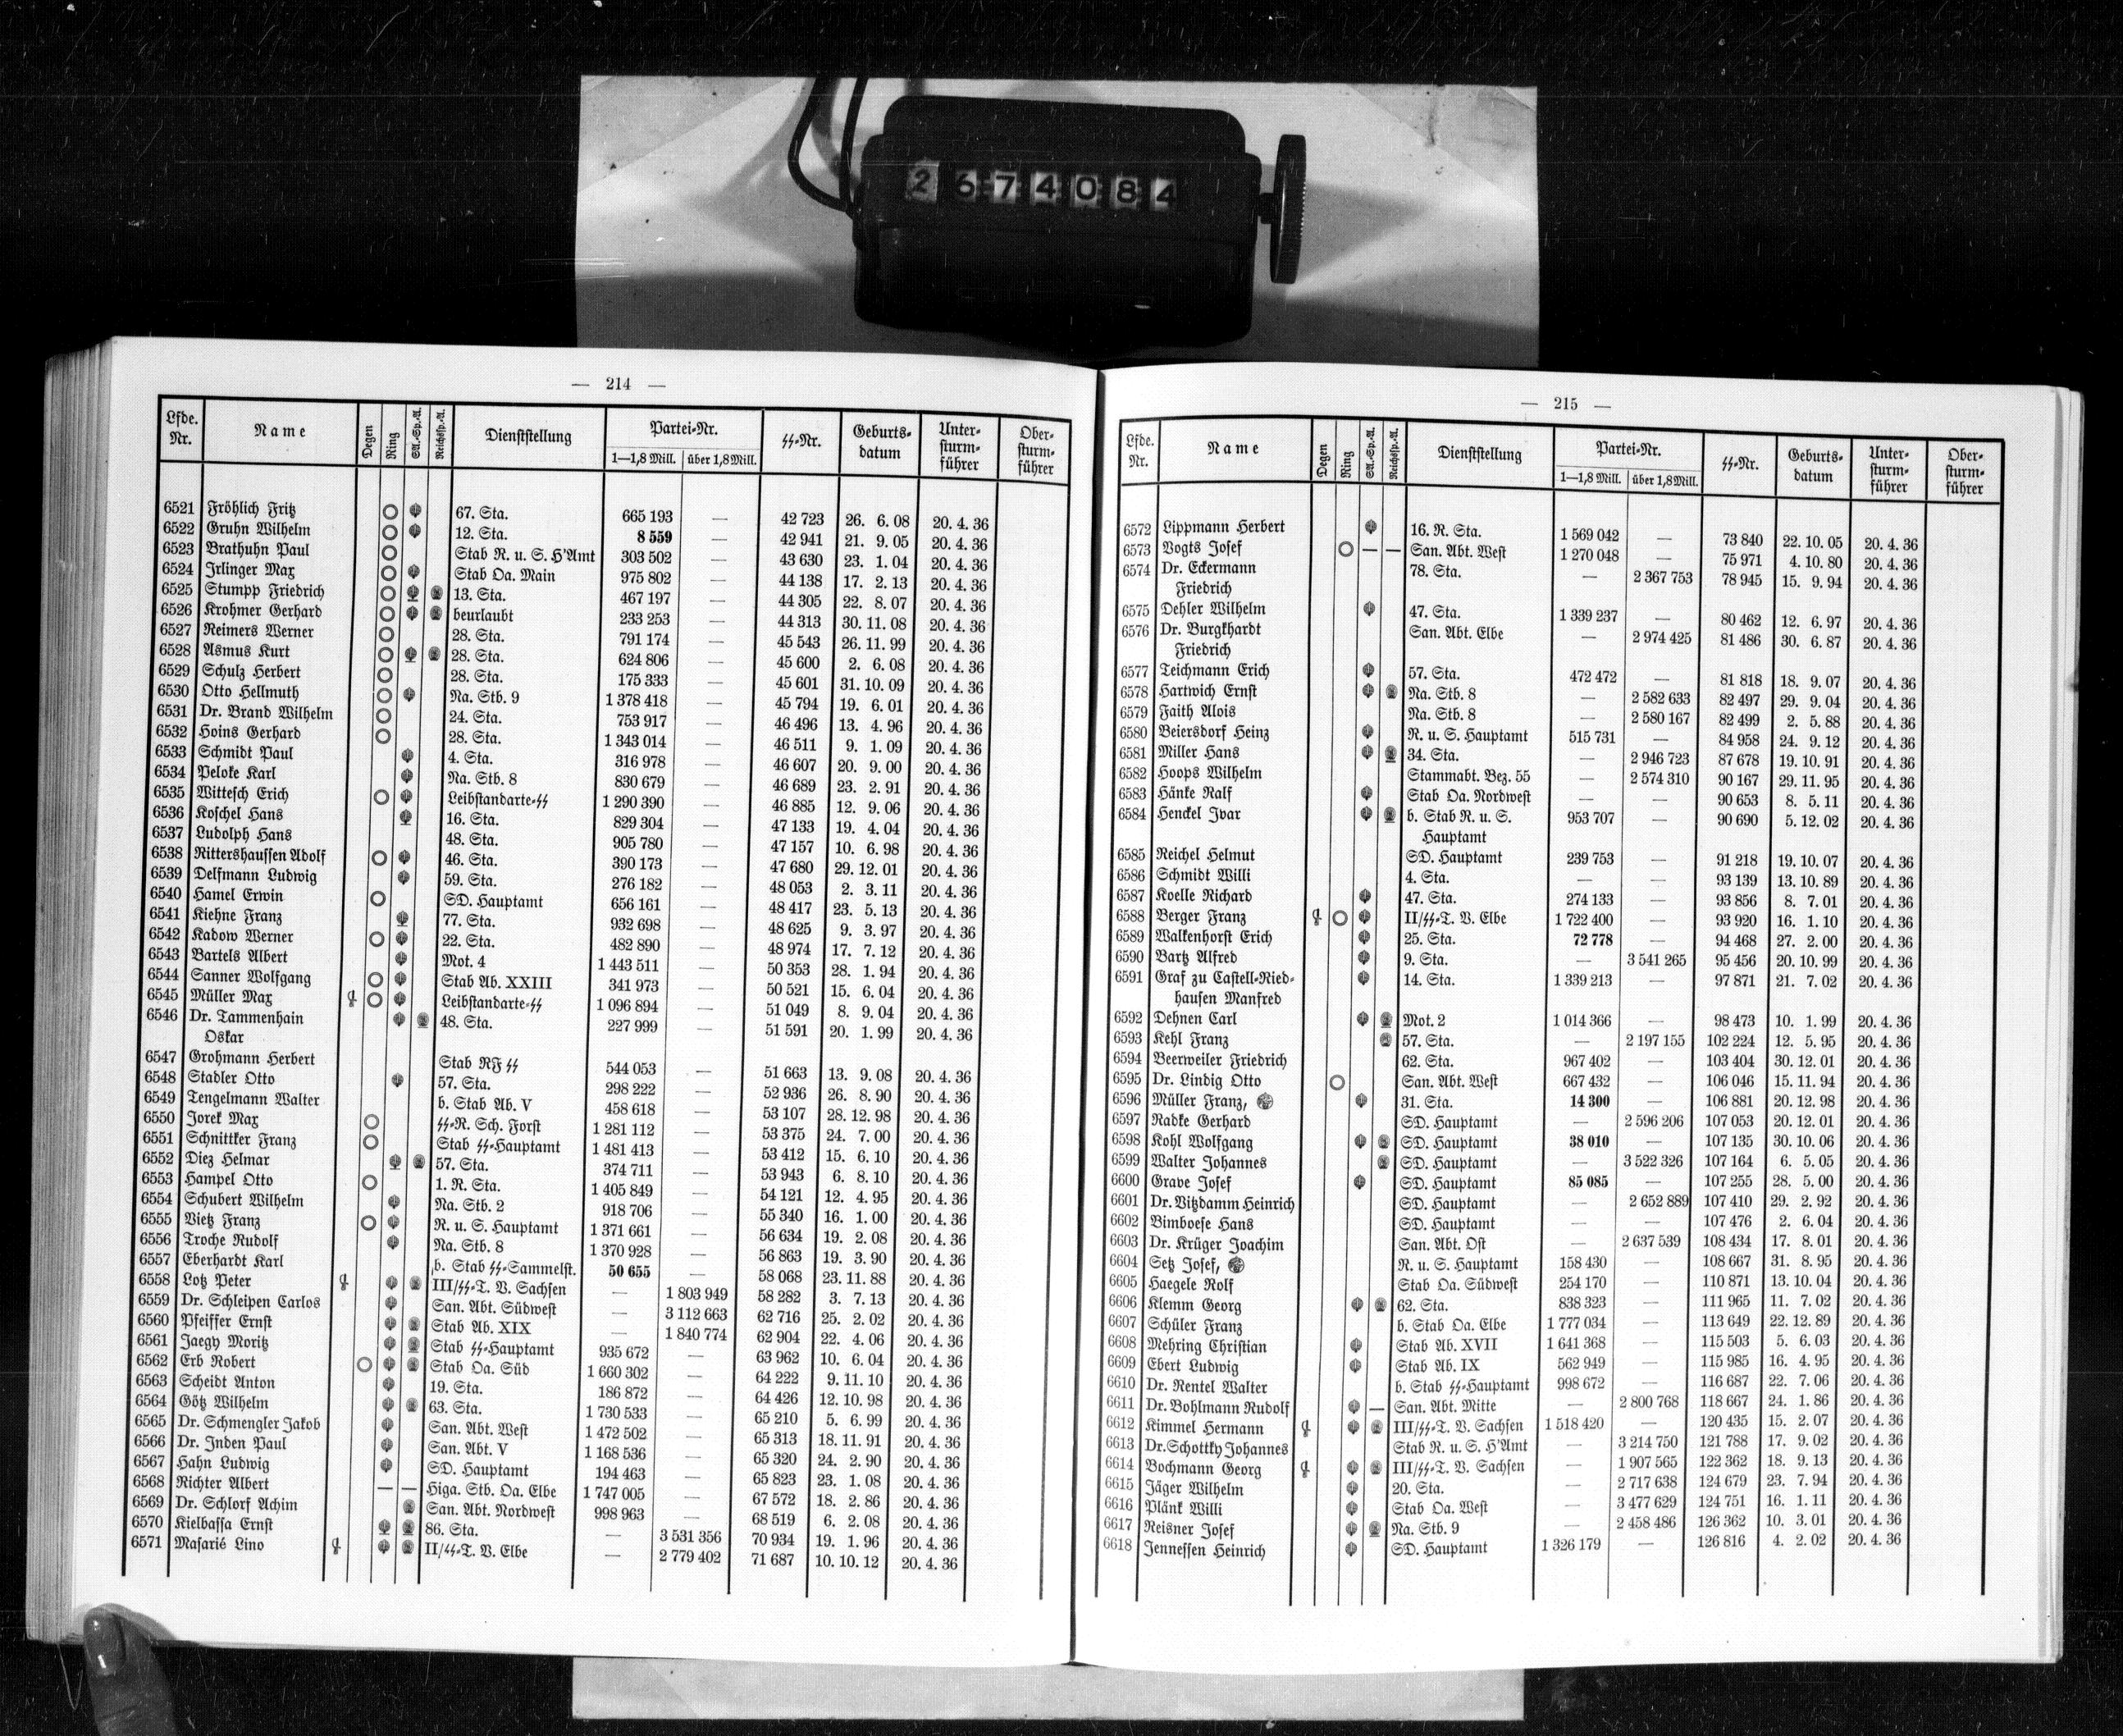 2674084
— 214 —
Lfde. Nr. Name Degen Ring SA.-Sp.-A. Reichssp.-A. Dienststellung Partei-Nr. 1—1,8 Mill. über 1,8 Mill. ᛋᛋ-Nr. Geburts-datum Unter-sturm-führer Ober-sturm-führer
6521 Fröhlich Fritz 67. Sta. 665 193 — 42 723 26. 6. 08 20. 4. 36
6522 Gruhn Wilhelm 12. Sta. 8 559 — 42 941 21. 9. 05 20. 4. 36
6523 Brathuhn Paul Stab R. u. S. H'Amt 303 502 — 43 630 23. 1. 04 20. 4. 36
6524 Irlinger Max Stab Oa. Main 975 802 — 44 138 17. 2. 13 20. 4. 36
6525 Stumpp Friedrich 13. Sta. 467 197 — 44 305 22. 8. 07 20. 4. 36
6526 Krohmer Gerhard beurlaubt 233 253 — 44 313 30. 11. 08 20. 4. 36
6527 Reimers Werner 28. Sta. 791 174 — 45 543 26. 11. 99 20. 4. 36
6528 Asmus Kurt 28. Sta. 624 806 — 45 600 2. 6. 08 20. 4. 36
6529 Schulz Herbert 28. Sta. 175 333 — 45 601 31. 10. 09 20. 4. 36
6530 Otto Hellmuth Na. Stb. 9 1 378 418 — 45 794 19. 6. 01 20. 4. 36
6531 Dr. Brand Wilhelm 24. Sta. 753 917 — 46 496 13. 4. 96 20. 4. 36
6532 Hoins Gerhard 28. Sta. 1 343 014 — 46 511 9. 1. 09 20. 4. 36
6533 Schmidt Paul 4. Sta. 316 978 — 46 607 20. 9. 00 20. 4. 36
6534 Peloke Karl Na. Stb. 8 830 679 — 46 689 23. 2. 91 20. 4. 36
6535 Wittesch Erich Leibstandarte-ᛋᛋ 1 290 390 — 46 885 12. 9. 06 20. 4. 36
6536 Koschel Hans 16. Sta. 829 304 — 47 133 19. 4. 04 20. 4. 36
6537 Ludolph Hans 48. Sta. 905 780 — 47 157 10. 6. 98 20. 4. 36
6538 Rittershaussen Adolf 46. Sta. 390 173 — 47 680 29. 12. 01 20. 4. 36
6539 Delfmann Ludwig 59. Sta. 276 182 — 48 053 2. 3. 11 20. 4. 36
6540 Hamel Erwin SD. Hauptamt 656 161 — 48 417 23. 5. 13 20. 4. 36
6541 Kiehne Franz 77. Sta. 932 698 — 48 625 9. 3. 97 20. 4. 36
6542 Kadow Werner 22. Sta. 482 890 — 48 974 17. 7. 12 20. 4. 36
6543 Bartels Albert Mot. 4 1 443 511 — 50 353 28. 1. 94 20. 4. 36
6544 Sanner Wolfgang Stab Ab. XXIII 341 973 — 50 521 15. 6. 04 20. 4. 36
6545 Müller Max Leibstandarte-ᛋᛋ 1 096 894 — 51 049 8. 9. 04 20. 4. 36
6546 Dr. Tammenhain 48. Sta. 227 999 — 51 591 20. 1. 99 20. 4. 36
Oskar
6547 Grohmann Herbert Stab RFᛋᛋ 544 053 — 51 663 13. 9. 08 20. 4. 36
6548 Stadler Otto 57. Sta. 298 222 — 52 936 26. 8. 90 20. 4. 36
6549 Tengelmann Walter b. Stab Ab. V 458 618 — 53 107 28. 12. 98 20. 4. 36
6550 Jorek Max ᛋᛋ-R. Sch. Forst 1 281 112 — 53 375 24. 7. 00 20. 4. 36
6551 Schnittker Franz Stab ᛋᛋ-Hauptamt 1 481 413 — 53 412 15. 6. 10 20. 4. 36
6552 Diez Helmar 57. Sta. 374 711 — 53 943 6. 8. 10 20. 4. 36
6553 Hampel Otto 1. R. Sta. 1 405 849 — 54 121 12. 4. 95 20. 4. 36
6554 Schubert Wilhelm Na. Stb. 2 918 706 — 55 340 16. 1. 00 20. 4. 36
6555 Vietz Franz R. u. S. Hauptamt 1 371 661 — 56 634 19. 2. 08 20. 4. 36
6556 Troche Rudolf Na. Stb. 8 1 370 928 — 56 863 19. 3. 90 20. 4. 36
6557 Eberhardt Karl b. Stab ᛋᛋ-Sammelst. 50 655 — 58 068 23. 11. 88 20. 4. 36
6558 Lotz Peter III/ᛋᛋ-T. V. Sachsen — 1 803 949 58 282 3. 7. 13 20. 4. 36
6559 Dr. Schleipen Carlos San. Abt. Südwest — 3 112 663 62 716 25. 2. 02 20. 4. 36
6560 Pfeiffer Ernst Stab Ab. XIX — 1 840 774 62 904 22. 4. 06 20. 4. 36
6561 Jaegy Moritz Stab ᛋᛋ-Hauptamt 935 672 — 63 962 10. 6. 04 20. 4. 36
6562 Erb Robert Stab Oa. Süd 1 660 302 — 64 222 9. 11. 10 20. 4. 36
6563 Scheidt Anton 19. Sta. 186 872 — 64 426 12. 10. 98 20. 4. 36
6564 Götz Wilhelm 63. Sta. 1 730 533 — 65 210 5. 6. 99 20. 4. 36
6565 Dr. Schmengler Jakob San. Abt. West 1 472 502 — 65 313 18. 11. 91 20. 4. 36
6566 Dr. Inden Paul San. Abt. V 1 168 536 — 65 320 24. 2. 90 20. 4. 36
6567 Hahn Ludwig SD. Hauptamt 194 463 — 65 823 23. 1. 08 20. 4. 36
6568 Richter Albert — — Higa. Stb. Oa. Elbe 1 747 005 — 67 572 18. 2. 86 20. 4. 36
6569 Dr. Schlorf Achim San. Abt. Nordwest 998 963 — 68 519 6. 2. 08 20. 4. 36
6570 Kielbassa Ernst 86. Sta. — 3 531 356 70 934 19. 1. 96 20. 4. 36
6571 Masarié Lino II/ᛋᛋ-T. V. Elbe — 2 779 402 71 687 10. 10. 12 20. 4. 36
— 215 —
Lfde. Nr. Name Degen Ring SA.-Sp.-A. Reichssp.-A. Dienststellung Partei-Nr. 1—1,8 Mill. über 1,8 Mill. ᛋᛋ-Nr. Geburts-datum Unter-sturm-führer Ober-sturm-führer
6572 Lippmann Herbert 16. R. Sta. 1 569 042 — 73 840 22. 10. 05 20. 4. 36
6573 Vogts Josef — — San. Abt. West 1 270 048 — 75 971 4. 10. 80 20. 4. 36
6574 Dr. Eckermann 78. Sta. — 2 367 753 78 945 15. 9. 94 20. 4. 36
Friedrich
6575 Dehler Wilhelm 47. Sta. 1 339 237 — 80 462 12. 6. 97 20. 4. 36
6576 Dr. Burgkhardt San. Abt. Elbe — 2 974 425 81 486 30. 6. 87 20. 4. 36
Friedrich
6577 Teichmann Erich 57. Sta. 472 472 — 81 818 18. 9. 07 20. 4. 36
6578 Hartwich Ernst Na. Stb. 8 — 2 582 633 82 497 29. 9. 04 20. 4. 36
6579 Faith Alois Na. Stb. 8 — 2 580 167 82 499 2. 5. 88 20. 4. 36
6580 Beiersdorf Heinz R. u. S. Hauptamt 515 731 — 84 958 24. 9. 12 20. 4. 36
6581 Miller Hans 34. Sta. — 2 946 723 87 678 19. 10. 91 20. 4. 36
6582 Hoops Wilhelm Stammabt. Bez. 55 — 2 574 310 90 167 29. 11. 95 20. 4. 36
6583 Hänke Ralf Stab Oa. Nordwest — — 90 653 8. 5. 11 20. 4. 36
6584 Henckel Ivar b. Stab R. u. S. 953 707 — 90 690 5. 12. 02 20. 4. 36
Hauptamt
6585 Reichel Helmut SD. Hauptamt 239 753 — 91 218 19. 10. 07 20. 4. 36
6586 Schmidt Willi 4. Sta. — — 93 139 13. 10. 89 20. 4. 36
6587 Koelle Richard 47. Sta. 274 133 — 93 856 8. 7. 01 20. 4. 36
6588 Berger Franz II/ᛋᛋ-T. V. Elbe 1 722 400 — 93 920 16. 1. 10 20. 4. 36
6589 Walkenhorst Erich 25. Sta. 72 778 — 94 468 27. 2. 00 20. 4. 36
6590 Bartz Alfred 9. Sta. — 3 541 265 95 456 20. 10. 99 20. 4. 36
6591 Graf zu Castell-Ried- 14. Sta. 1 339 213 — 97 871 21. 7. 02 20. 4. 36
hausen Manfred
6592 Dehnen Carl Mot. 2 1 014 366 — 98 473 10. 1. 99 20. 4. 36
6593 Kehl Franz 57. Sta. — 2 197 155 102 224 12. 5. 95 20. 4. 36
6594 Beerweiler Friedrich 62. Sta. 967 402 — 103 404 30. 12. 01 20. 4. 36
6595 Dr. Lindig Otto San. Abt. West 667 432 — 106 046 15. 11. 94 20. 4. 36
6596 Müller Franz, 31. Sta. 14 300 — 106 881 20. 12. 98 20. 4. 36
6597 Radke Gerhard SD. Hauptamt — 2 596 206 107 053 20. 12. 01 20. 4. 36
6598 Kohl Wolfgang SD. Hauptamt 38 010 — 107 135 30. 10. 06 20. 4. 36
6599 Walter Johannes SD. Hauptamt — 3 522 326 107 164 6. 5. 05 20. 4. 36
6600 Grave Josef SD. Hauptamt 85 085 — 107 255 28. 5. 00 20. 4. 36
6601 Dr. Vitzdamm Heinrich SD. Hauptamt — 2 652 889 107 410 29. 2. 92 20. 4. 36
6602 Bimboese Hans SD. Hauptamt — — 107 476 2. 6. 04 20. 4. 36
6603 Dr. Krüger Joachim San. Abt. Ost — 2 637 539 108 434 17. 8. 01 20. 4. 36
6604 Setz Josef, R. u. S. Hauptamt 158 430 — 108 667 31. 8. 95 20. 4. 36
6605 Haegele Rolf Stab Oa. Südwest 254 170 — 110 871 13. 10. 04 20. 4. 36
6606 Klemm Georg 62. Sta. 838 323 — 111 965 11. 7. 02 20. 4. 36
6607 Schüler Franz b. Stab Oa. Elbe 1 777 034 — 113 649 22. 12. 89 20. 4. 36
6608 Mehring Christian Stab Ab. XVII 1 641 368 — 115 503 5. 6. 03 20. 4. 36
6609 Ebert Ludwig Stab Ab. IX 562 949 — 115 985 16. 4. 95 20. 4. 36
6610 Dr. Rentel Walter b. Stab ᛋᛋ-Hauptamt 998 672 — 116 687 22. 7. 06 20. 4. 36
6611 Dr. Bohlmann Rudolf — San. Abt. Mitte — 2 800 768 118 667 24. 1. 86 20. 4. 36
6612 Kimmel Hermann III/ᛋᛋ-T. V. Sachsen 1 518 420 — 120 435 15. 2. 07 20. 4. 36
6613 Dr. Schottky Johannes Stab R. u. S. H'Amt — 3 214 750 121 788 17. 9. 02 20. 4. 36
6614 Bochmann Georg III/ᛋᛋ-T. V. Sachsen — 1 907 565 122 362 18. 9. 13 20. 4. 36
6615 Jäger Wilhelm 20. Sta. — 2 717 638 124 679 23. 7. 94 20. 4. 36
6616 Plänk Willi Stab Oa. West — 3 477 629 124 751 16. 1. 11 20. 4. 36
6617 Reisner Josef Na. Stb. 9 — 2 458 486 126 362 10. 3. 01 20. 4. 36
6618 Jennessen Heinrich SD. Hauptamt 1 326 179 — 126 816 4. 2. 02 20. 4. 36